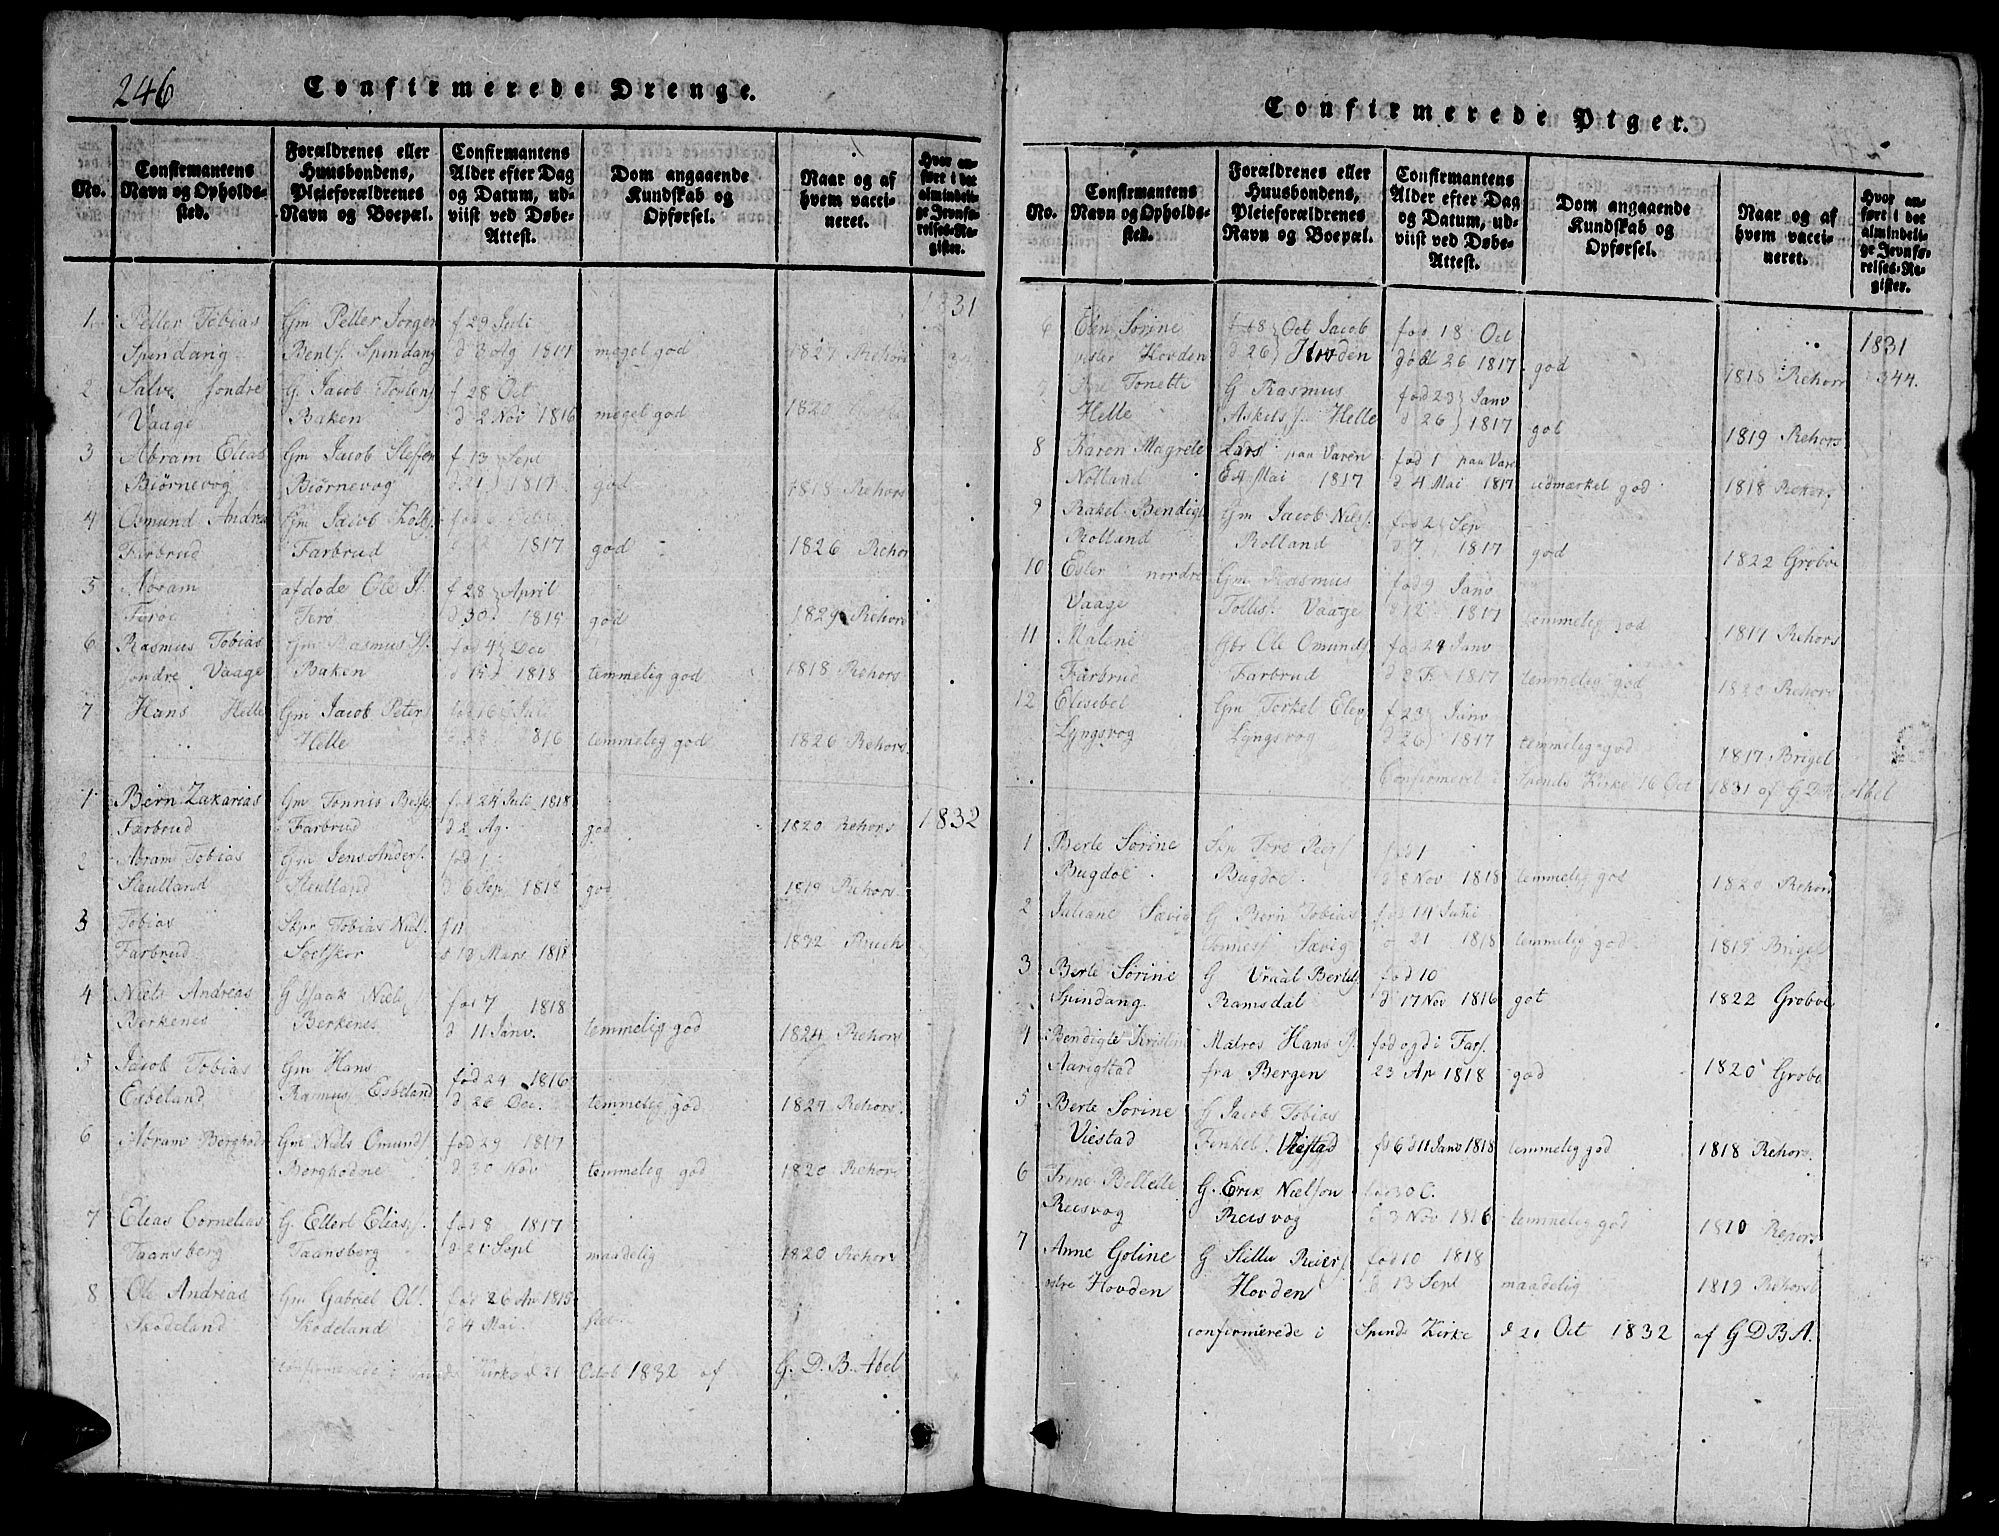 246
Confirmerede Drenge.
No.
Confirmantens Navn og Opholdssted.
Forældrenes eller Huusbondens, Pleieforældrenes Navn og Boepæl.
Confirmantens Alder efter Dag og Datum, udviist ved Døbe-Attest.
Dom angaaende Kundskab og Opførsel.
Naar og af hvem vaccineret.
Hvor anført i det almindelige Jevnførelses-Register.
1831
1 Petter Tobias Gm Petter Jorgen f 29 Juli
Spindang Bents. Spindang d 3 Ag 1817 meget god 1827 Rehors
2 Salve søndre G. Jacob Torlens f 28 Oct
Vaage Baken d 2 Nov 1816 meget god 1820
3 Abram Elias Gm Jacob Steffen f 13 Sept
Biørnevog Biørnevog d 21 1817 god 1818 Rehors
4 Osmund Andrea Gm Jacob
Farbrud Farbrud 1817 god 1826 Rehor
5 Abram afdøde Ole f 28 April
Ferø d 30 god 1829 Rehors
6 Rasmus Tobias Gm Rasmus fød 4 Dec
søndre Vaage Baken d 1818 temmelig god 1818 Rehors
7 Hans Helle Gm Jacob Peter fød 16 Juli
Helle 1816 temmelig god 1826 Rehors.
1832
1 Bern Zakarias Gm Tonnis fød 24 Juli 1818
Farbrud Farbrud d 2 Ag. god 1820 Rehors
2 Abram Tobias Gm Jens Anders. fød 1
Sleutland Sleutland d 6 Sep 1818 god 1819 Rehors
3 Tobias Tobias Niel. f 11
Farbrud d 13 Mars 1818 1832 Buch
4 Niels Andreas G Isaak Niels fød 7 1818
Berkenes Berkenes d 11 Janv. temmelig god 1824 Rehors
5 Jacob Tobias Gm Hans fød 24 1816
Esbeland Rasmus Esbeland d 26 Dec. temmelig god 1827 Rehors.
6 Abram Berghodne Gm Niels Omund. fød 29 1817
Berghodne d 30 Nov temmelig god 1820 Rehors
7 Elias Cornelias G. Ellert Elias. fød 8 1817
Taansberg Taansberg d 21 Sept maadelig 1820 Rehors
8 Ole Andreas Gm Gabriel Ol. fød 26 Ap 1815
Skodeland Skodeland d 4 Mai slet
confirmerede i Spinds Kirke d 21 Octob 1832 af G. D. B. Abel
Confirmerede Piger.
No.
Confirmantens Navn og Opholdssted.
Forældrenes eller Huusbondens, Pleieforældrenes Navn og Boepæl.
Confirmantens Alder efter Dag og Datum, udviist ved Døbe-Attest.
Dom angaaende Kundskab og Opførsel.
Naar og af hvem vaccineret.
Hvor anført i det almindelige Jevnførelses-Register.
1831
6 Elen Sørine f 18 Oct Jacob fød 18 Oct
vester Hovden d 26 Hovden døbt 26 1817 god 1818 Rehors 344.
7 Tonette G Rasmus fød 23 Janv
Helle Askels. Helle d 26 1817 got 1819 Rehors
8 Karen Magrete Lars paa Varen fød 1 paa Vare
Nolland E 4 Mai 1817 d 4 Mai 1817 udmærket god 1818 Rehors
9 Rakel Bendigte Gm Jacob Niels. fød 2 Sep
Rolland Rolland d 7 1817 god 1822 Grøboe
10 Ester nordre Gm Rasmus fød 9 Janv
Vaage Tollis. Vaage d 12 1817 temmelig god 1817 Rehors
11 Malene Gbr Ole Omunds. fød 29 Janv
Farbrud Farbrud d 2 F 1817 temmelig god 1820 Rehors
12 Elisebet Gm Torkel f 23 Janv
Lyngsvog Lyngsvog d 26 1817 temmelig god 1817 Brigel
Confirmeret i Spinds Kirke 16 Oct 1831 af G D B Abel
1 Berte Sørine Tore fød 1
Bugdøe. Bugdøe. d 8 Nov 1818 temmelig god 1820 Rehors
2 Juliane Sævig G Bern Tobias fød 14 Juni
Tonnes. Sævig d 21 1818 temmelig god 1819 Brigel
3 Berte Sørine G Vraal Bertels fød 10
Spindang Ramsdal d 17 Nov 1816 got 1822 Groboe
4 Bendigte Kristine Matros Hans fød og d i Fars.
Aarigstad fra Bergen 23 Ap 1818 god 1820 Groboe
5 Berte Sørine G Jacob Tobias
Viestad Fenkel. Viestad fø 6 d 11 Janv 1818 temmelig god 1818 Rehors
6 Trine Bollette G. Erik Nielson fød 30 O.
Reisvog Reisvog d 3 Nov 1816 temmelig god 1820 Rehors
7 Anne Goline G Sittu Reier. fød 10 1818
Hovden Hovden d 13 Sept maadelig 1819 Rehorst
confirmerede i Spinds Kirke d 21 Oct 1832 af G D B A.